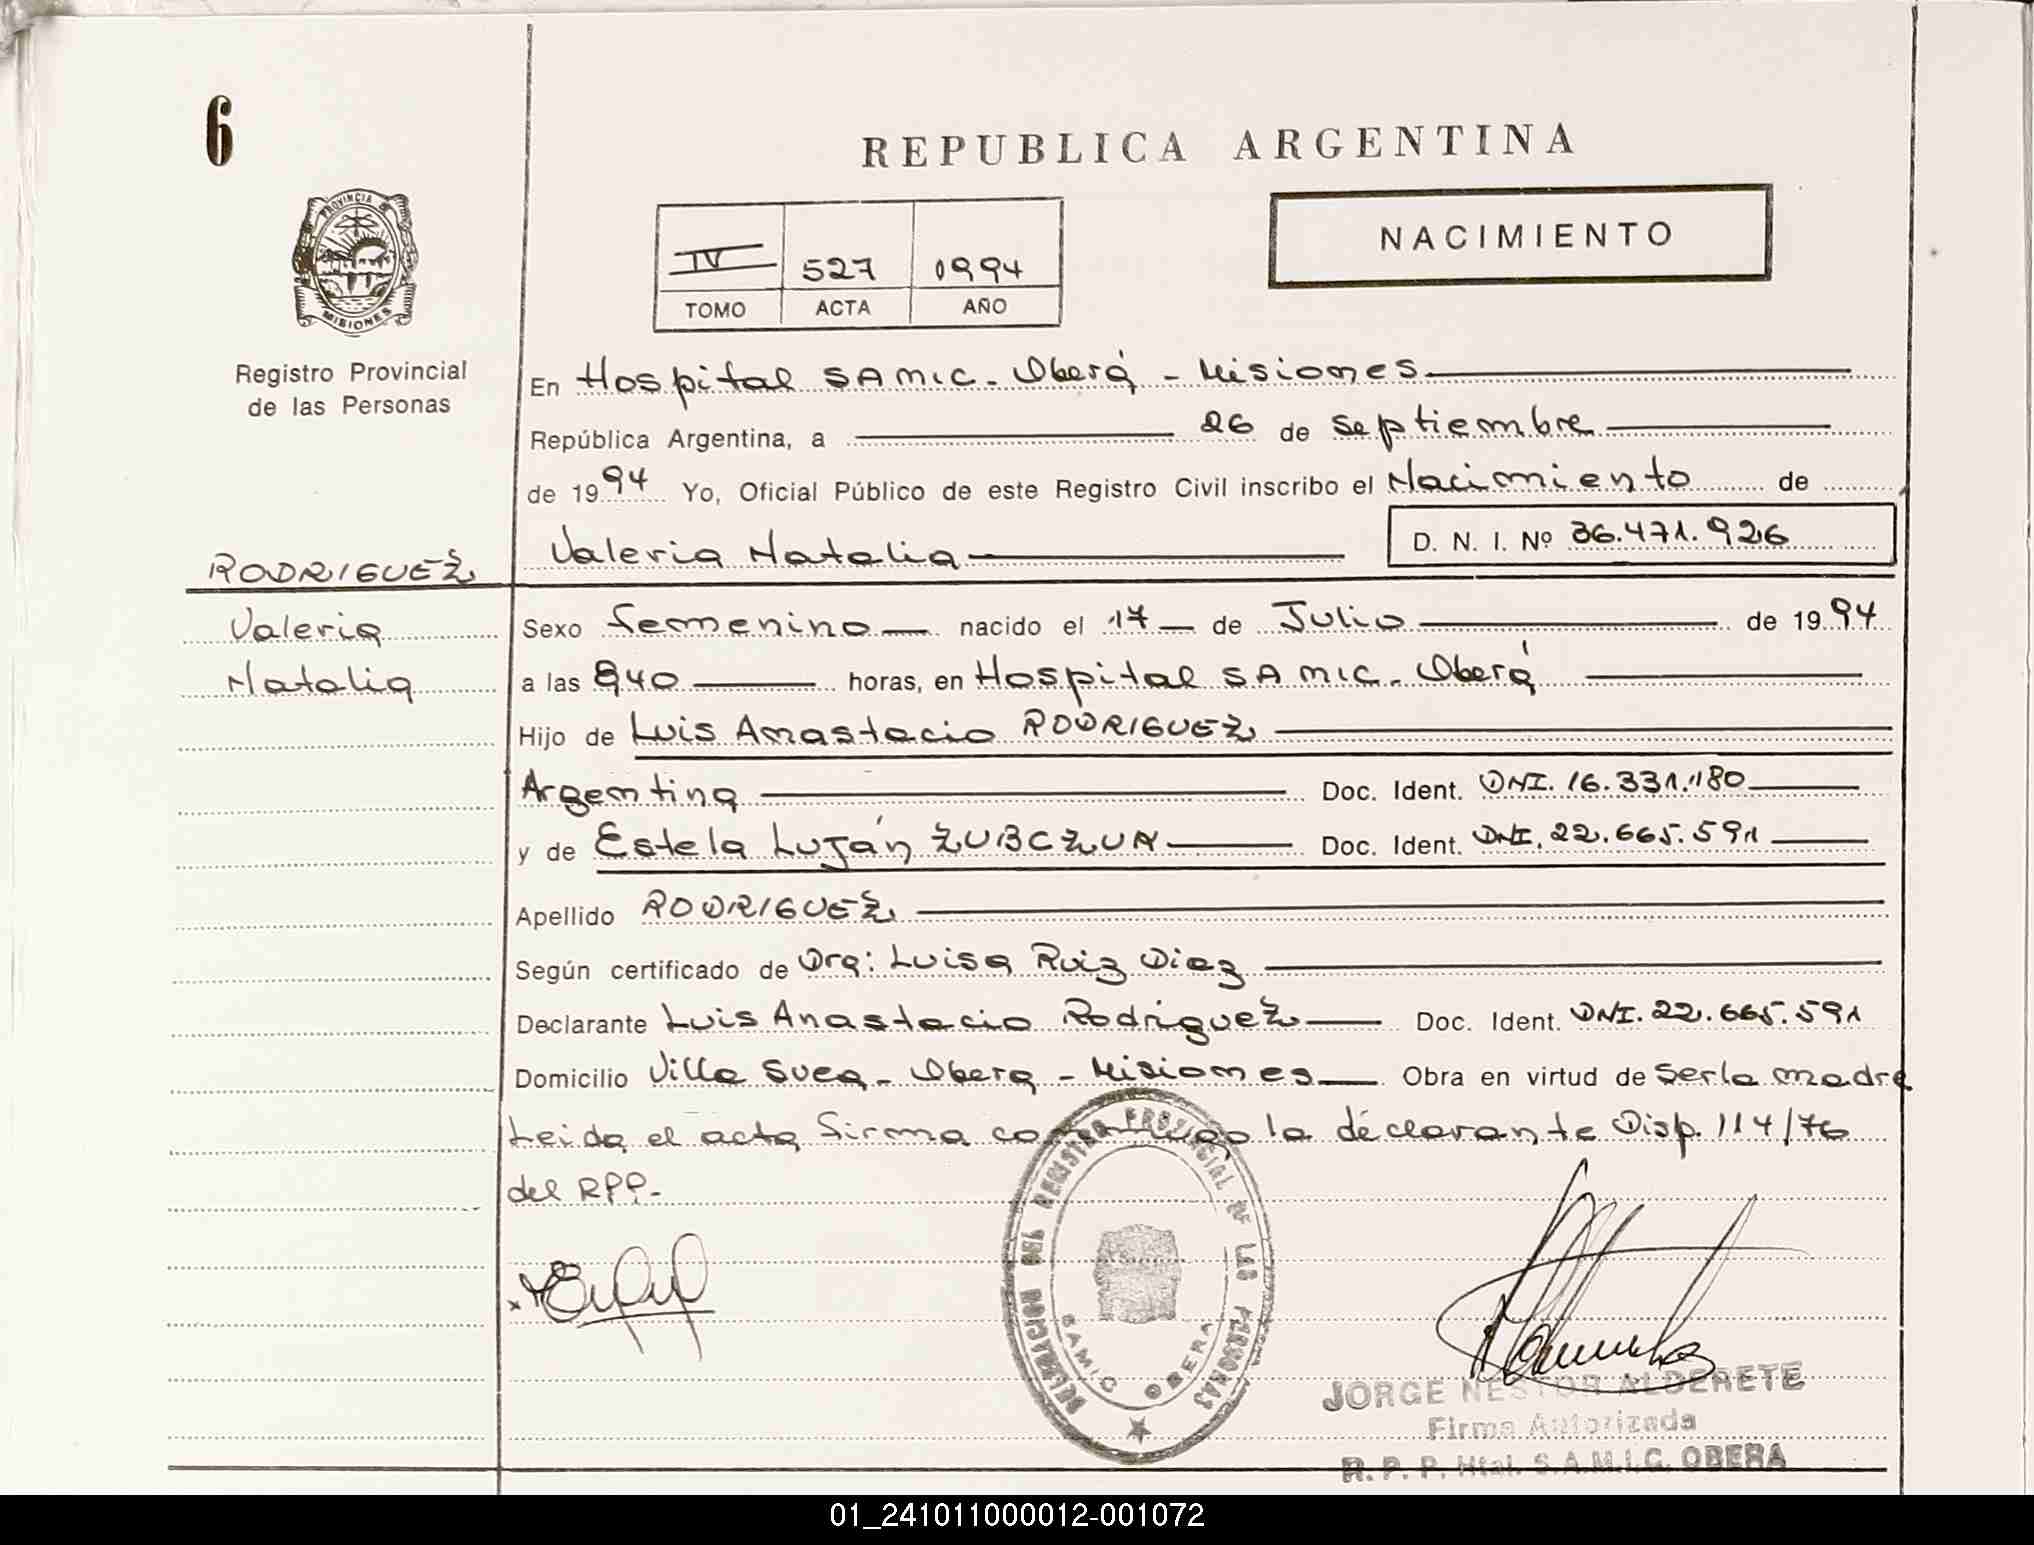 6
REPUBLICA ARGENTINA
PROVINCIA DE
MISIONES
NACIMIENTO
IV 527 1994
TOMO ACTA AÑO
Registro Provincial
de las Personas
En Hospital SAMIC - Oberá - Misiones
República Argentina, a 26 de septiembre
de 1994 Yo, Oficial Público de este Registro Civil inscribo el Nacimiento de
Valeria Natalia D. N. I. Nº 36.471.926
RODRIGUEZ
Valeria
Natalia
Sexo femenino nacido el 17 de Julio de 1994
a las 840 horas, en Hospital SAMIC - Oberá
Hijo de Luis Anastacio RODRIGUEZ
Argentina Doc. Ident. DNI. 16.331.180
y de Estela Luján ZUBCZUK Doc. Ident. DNI. 22.665.591
Apellido RODRIGUEZ
Según certificado de Dra: Luisa Ruiz Diaz
Declarante Luis Anastacio Rodriguez Doc. Ident. DNI. 22.665.591
Domicilio Villa Suea - Obera - Misiones Obra en virtud de Ser la madre
Leida el acta firma conmigo la declarante Disp. 114/76
del RPP.-
DELEGACION REGISTRO PROVINCIAL DE LAS PERSONAS
SAMIC OBERA
JORGE NESTOR ALDERETE
Firma Autorizada
R. P. P. Htal. S.A.M.I.C. OBERA
01_241011000012-001072